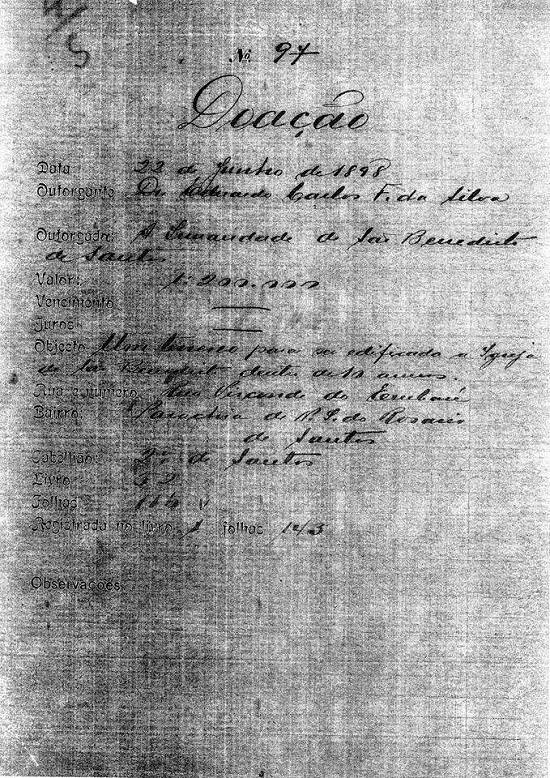 Nº 97
Doação
Data 22 de Junho de 1898
Outorgante Dr. Eduardo Carlos F. da Silva
Outorgada: A Irmandade de São Benedicto
de Santos
Valor: 1:200.000
Vencimento
Juros:
Objecto Um terreno para ser edificada a Igreja
de São Benedicto dentro de annos.
Rua e numero. Rua do Embaré
Bairro: Parochia de N. S. do Rosario
de Santos
Tabellião: 2º de Santos
Livro
Folhas
Registrada no livro 1 folhas 143
Observações: